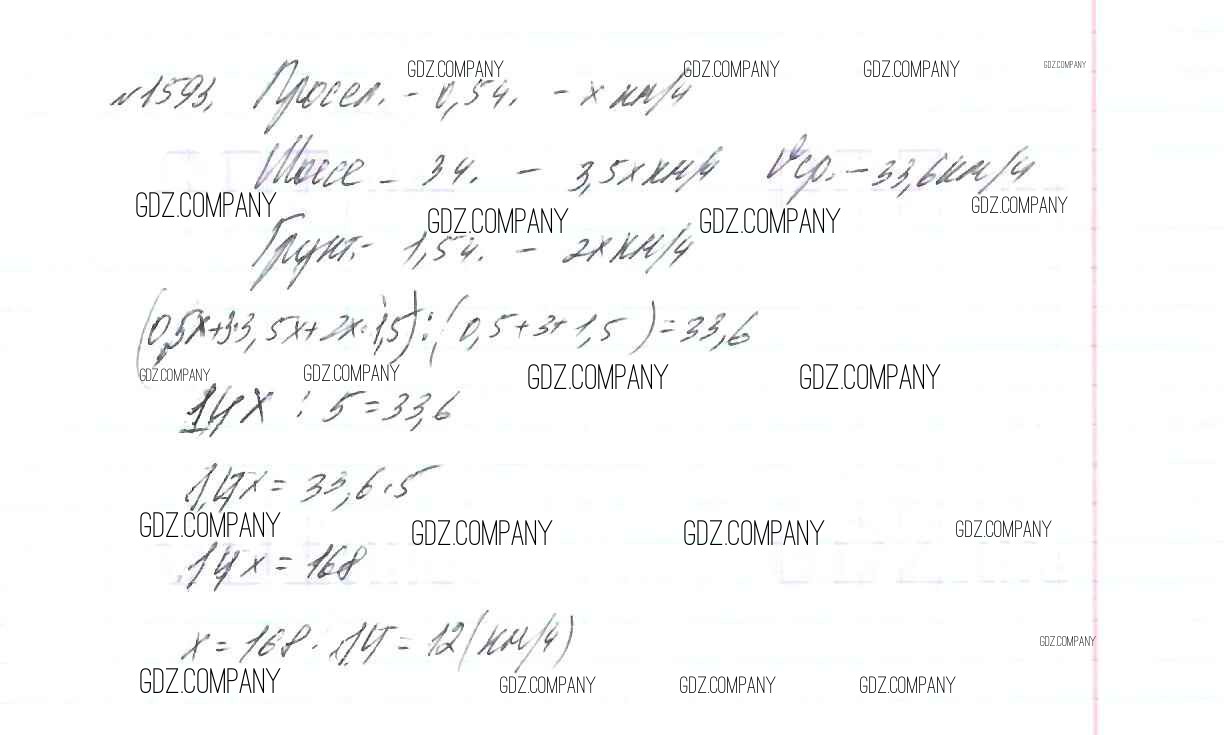 GDZ.COMPANY GDZ.COMPANY GDZ.COMPANY GDZ.COMPANY
№1593. Просел. - 0,5ч. - x км/ч
Шоссе - 3ч. - 3,5x км/ч Vср. - 33,6 км/ч
GDZ.COMPANY GDZ.COMPANY GDZ.COMPANY GDZ.COMPANY
Грунт. - 1,5ч. - 2x км/ч
(0,5x+3·3,5x+2x·1,5):(0,5+3+1,5)=33,6
GDZ.COMPANY GDZ.COMPANY GDZ.COMPANY GDZ.COMPANY
14x : 5 = 33,6
14x = 33,6·5
GDZ.COMPANY GDZ.COMPANY GDZ.COMPANY GDZ.COMPANY
14x = 168
x = 168 : 14 = 12 (км/ч)
GDZ.COMPANY
GDZ.COMPANY GDZ.COMPANY GDZ.COMPANY GDZ.COMPANY